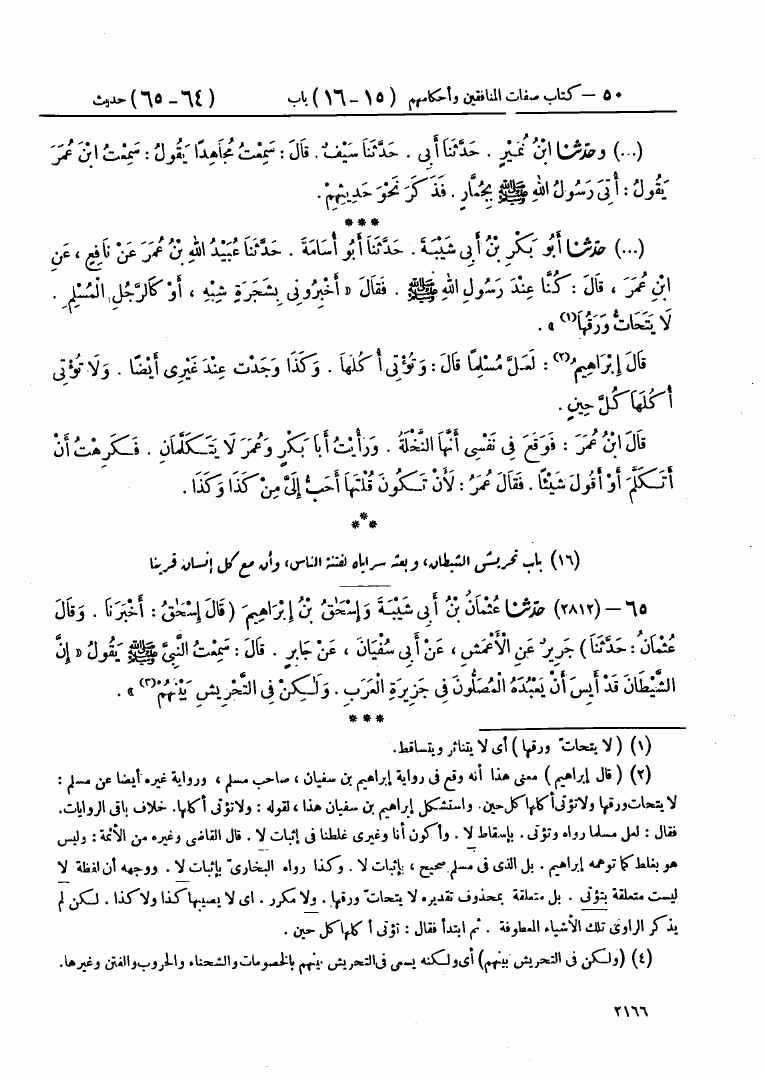 ٥٠ – كتاب صفات المنافقين وأحكامهم (١٥ – ١٦) باب (٦٤ – ٦٥) حديث
(...) وحَدَّثَنَا ابْنُ نُمَيْرٍ . حَدَّثَنَا أَبِى . حَدَّثَنَا سَيْفٌ . قَالَ : سَمِعْتُ مُجَاهِدًا يَقُولُ : سَمِعْتُ ابْنَ عُمَرَ
يَقُولُ : أُتِىَ رَسُولُ اللهِ ﷺ بِجُمَّارٍ . فَذَكَرَ نَحْوَ حَدِيثِهِمْ .
***
(...) حَدَّثَنَا أَبُو بَكْرِ بْنُ أَبِى شَيْبَةَ . حَدَّثَنَا أَبُو أُسَامَةَ . حَدَّثَنَا عُبَيْدُ اللهِ بْنُ عُمَرَ عَنْ نَافِعٍ ، عَنِ
ابْنِ عُمَرَ ، قَالَ : كُنَّا عِنْدَ رَسُولِ اللهِ ﷺ . فَقَالَ « أَخْبِرُونِى بِشَجَرَةٍ شِبْهِ ، أَوْ كَالرَّجُلِ الْمُسْلِمِ .
لَا يَتَحَاتُّ وَرَقُهَا(١) » .
قَالَ إِبْرَاهِيمُ(٢) : لَعَلَّ مُسْلِمًا قَالَ : وَتُؤْتِى أُكُلَهَا . وَكَذَا وَجَدْتُ عِنْدَ غَيْرِى أَيْضًا . وَلَا تُؤْتِى
أُكُلَهَا كُلَّ حِينٍ .
قَالَ ابْنُ عُمَرَ : فَوَقَعَ فِى نَفْسِى أَنَّهَا النَّخْلَةُ . وَرَأَيْتُ أَبَا بَكْرٍ وَعُمَرَ لَا يَتَكَلَّمَانِ . فَكَرِهْتُ أَنْ
أَتَكَلَّمَ أَوْ أَقُولَ شَيْئًا . فَقَالَ عُمَرُ : لَأَنْ تَكُونَ قُلْتَهَا أَحَبُّ إِلَىَّ مِنْ كَذَا وَكَذَا .
***
(١٦) باب تحريش الشيطان، وبعثه سراياه لفتنة الناس، وأن مع كل إنسان قرينا
٦٥ – (٢٨١٢) حَدَّثَنَا عُثْمَانُ بْنُ أَبِى شَيْبَةَ وَإِسْحَٰقُ بْنُ إِبْرَاهِيمَ ( قَالَ إِسْحَٰقُ : أَخْبَرَنَا . وَقَالَ
عُثْمَانُ : حَدَّثَنَا ) جَرِيرٌ عَنِ الْأَعْمَشِ ، عَنْ أَبِى سُفْيَانَ ، عَنْ جَابِرٍ . قَالَ : سَمِعْتُ النَّبِىَّ ﷺ يَقُولُ « إِنَّ
الشَّيْطَانَ قَدْ أَيِسَ أَنْ يَعْبُدَهُ الْمُصَلُّونَ فِى جَزِيرَةِ الْعَرَبِ . وَلَٰكِنْ فِى التَّحْرِيشِ بَيْنَهُمْ(٣) » .
***
(١) ( لا يتحاتّ ورقها ) أى لا يتناثر ويتساقط.
(٢) ( قال إبراهيم ) معنى هذا أنه وقع فى رواية إبراهيم بن سفيان ، صاحب مسلم ، ورواية غيره أيضا عن مسلم :
لا يتحات ورقها ولا تؤتى أكلها كل حين. واستشكل إبراهيم بن سفيان هذا ، لقوله : ولا تؤتى أكلها. خلاف باقى الروايات.
فقال : لعل مسلما رواه وتؤتى . بإسقاط لا . وأكون أنا وغيرى غلطنا فى إثبات لا . قال القاضى وغيره من الأئمة : وليس
هو بغلط كما توهمه إبراهيم . بل الذى فى مسلم صحيح ، بإثبات لا . وكذا رواه البخارىّ بإثبات لا . ووجهه أن لفظة لا
ليست متعلقة بتؤتى . بل متعلقة بمحذوف تقديره لا يتحاتّ ورقها . ولا مكرر . اى لا يصيبها كذا ولا كذا . لكن لم
يذكر الراوى تلك الأشياء المعطوفة . ثم ابتدأ فقال : تؤتى أكلها كل حين .
(٤) (ولكن فى التحريش بينهم) أى ولكنه يسعى فى التحريش بينهم بالخصومات والشحناء والحروب والفتن وغيرها.
٢١٦٦